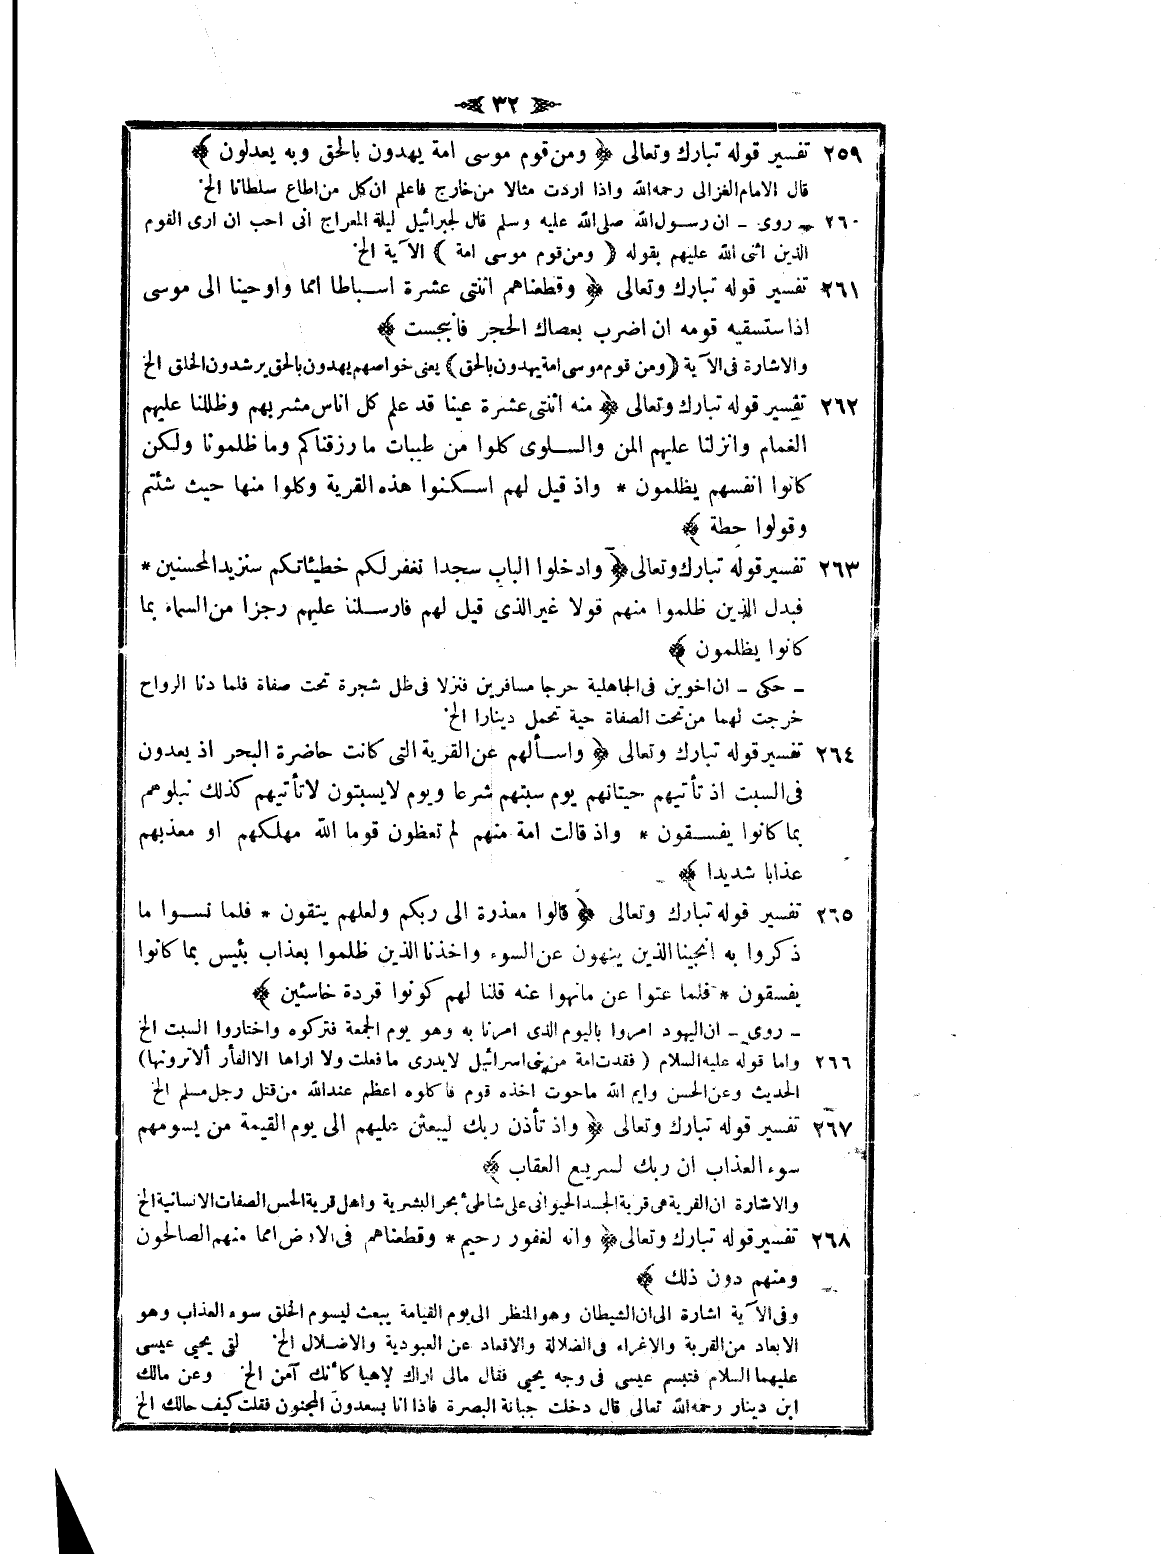 ٣٢
٢٥٩ تفسير قوله تبارك وتعالى ﴿ ومن قوم موسى امة يهدون بالحق وبه يعدلون ﴾
قال الامام الغزالى رحمه الله واذا اردت مثالا من خارج فاعلم ان كل من اطاع سلطانا الخ
٢٦٠ ـ روى ـ ان رسول الله صلى الله عليه وسلم قال لجبرائيل ليلة المعراج انى احب ان ارى القوم
الذين اثنى الله عليهم بقوله ( ومن قوم موسى امة ) الآية الخ
٢٦١ تفسير قوله تبارك وتعالى ﴿ وقطعناهم اثنتى عشرة اسباطا امما واوحينا الى موسى
اذ استسقيه قومه ان اضرب بعصاك الحجر فانبجست ﴾
والاشارة فى الآية ( ومن قوم موسى امة يهدون بالحق ) يعنى خواصهم يهدون بالحق يرشدون الخلق الخ
٢٦٢ تفسير قوله تبارك وتعالى ﴿ منه اثنتى عشرة عينا قد علم كل اناس مشربهم وظللنا عليهم
الغمام وانزلنا عليهم المن والسلوى كلوا من طيبات ما رزقناكم وما ظلمونا ولكن
كانوا انفسهم يظلمون * واذ قيل لهم اسكنوا هذه القرية وكلوا منها حيث شئتم
وقولوا حطة ﴾
٢٦٣ تفسير قوله تبارك وتعالى ﴿ وادخلوا الباب سجدا تغفر لكم خطيئاتكم سنزيد المحسنين *
فبدل الذين ظلموا منهم قولا غير الذى قيل لهم فارسلنا عليهم رجزا من السماء بما
كانوا يظلمون ﴾
ـ حكى ـ ان اخوين فى الجاهلية خرجا مسافرين فنزلا فى ظل شجرة تحت صفاة فلما دنا الرواح
خرجت لهما من تحت الصفاة حية تحمل دينارا الخ
٢٦٤ تفسير قوله تبارك وتعالى ﴿ واسألهم عن القرية التى كانت حاضرة البحر اذ يعدون
فى السبت اذ تأتيهم حيتانهم يوم سبتهم شرعا ويوم لا يسبتون لا تأتيهم كذلك نبلوهم
بما كانوا يفسقون * واذ قالت امة منهم لم تعظون قوما الله مهلكهم او معذبهم
عذابا شديدا ﴾
٢٦٥ تفسير قوله تبارك وتعالى ﴿ قالوا معذرة الى ربكم ولعلهم يتقون * فلما نسوا ما
ذكروا به انجينا الذين ينهون عن السوء واخذنا الذين ظلموا بعذاب بئيس بما كانوا
يفسقون * فلما عتوا عن ما نهوا عنه قلنا لهم كونوا قردة خاسئين ﴾
ـ روى ـ ان اليهود امروا باليوم الذى امرنا به وهو يوم الجمعة فتركوه واختاروا السبت الخ
٢٦٦ واما قوله عليه السلام ( فقدت امة من بنى اسرائيل لا يدرى ما فعلت ولا اراها الا الفأر ألا ترونها )
الحديث وعن الحسن وايم الله ما حوت اخذه قوم فاكلوه اعظم عند الله من قتل رجل مسلم الخ
٢٦٧ تفسير قوله تبارك وتعالى ﴿ واذ تأذن ربك ليبعثن عليهم الى يوم القيمة من يسومهم
سوء العذاب ان ربك لسريع العقاب ﴾
والاشارة ان القرية هى قرية الجسد الحيوانى على شاطئ بحر البشرية واهل قرية الحس الصفات الانسانية الخ
٢٦٨ تفسير قوله تبارك وتعالى ﴿ وانه لغفور رحيم * وقطعناهم فى الارض امما منهم الصالحون
ومنهم دون ذلك ﴾
وفى الآية اشارة الى ان الشيطان وهو المنظر الى يوم القيامة يبعث ليسوم الخلق سوء العذاب وهو
الابعاد من القربة والاغراء فى الضلالة والاقعاد عن العبودية والاضلال الخ لقى يحيى عيسى
عليهما السلام فتبسم عيسى فى وجه يحيى فقال مالى اراك لاهيا كأنك آمن الخ وعن مالك
ابن دينار رحمه الله تعالى قال دخلت جبانة البصرة فاذا انا بسعدون المجنون فقلت كيف حالك الخ